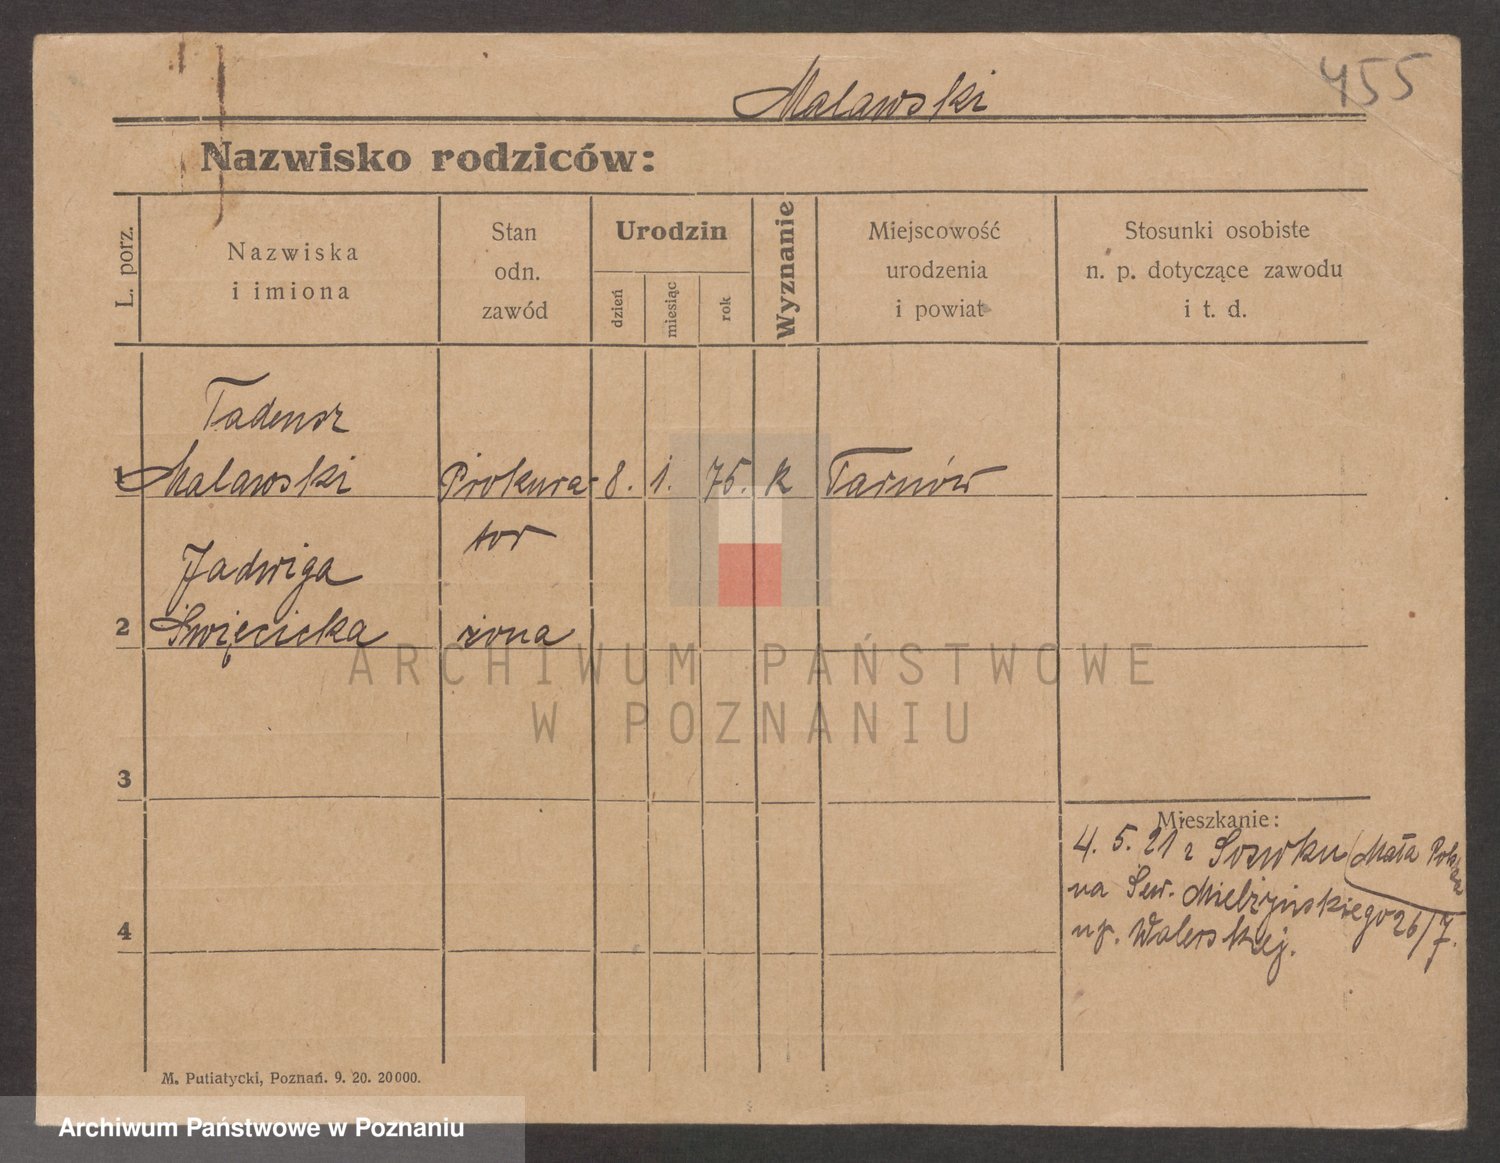 455
Malawski
Nazwisko rodziców:
L. porz.
Nazwiska
i imiona
Stan
odn.
zawód
Urodzin
dzień
miesiąc
rok
Wyznanie
Miejscowość
urodzenia
i powiat
Stosunki osobiste
n. p. dotyczące zawodu
i t. d.
Tadeusz
1 Malawski Prokura- 8. 1. 75. k Tarnów
tor
Jadwiga
2 Święcicka żona
3
Mieszkanie:
4. 5. 21 z (Mała
na Sew. Mielżyńskiego 26/7.
4
up. Walerskiej.
M. Putiatycki, Poznań. 9. 20. 20000.
ARCHIWUM PAŃSTWOWE
W POZNANIU
Archiwum Państwowe w Poznaniu